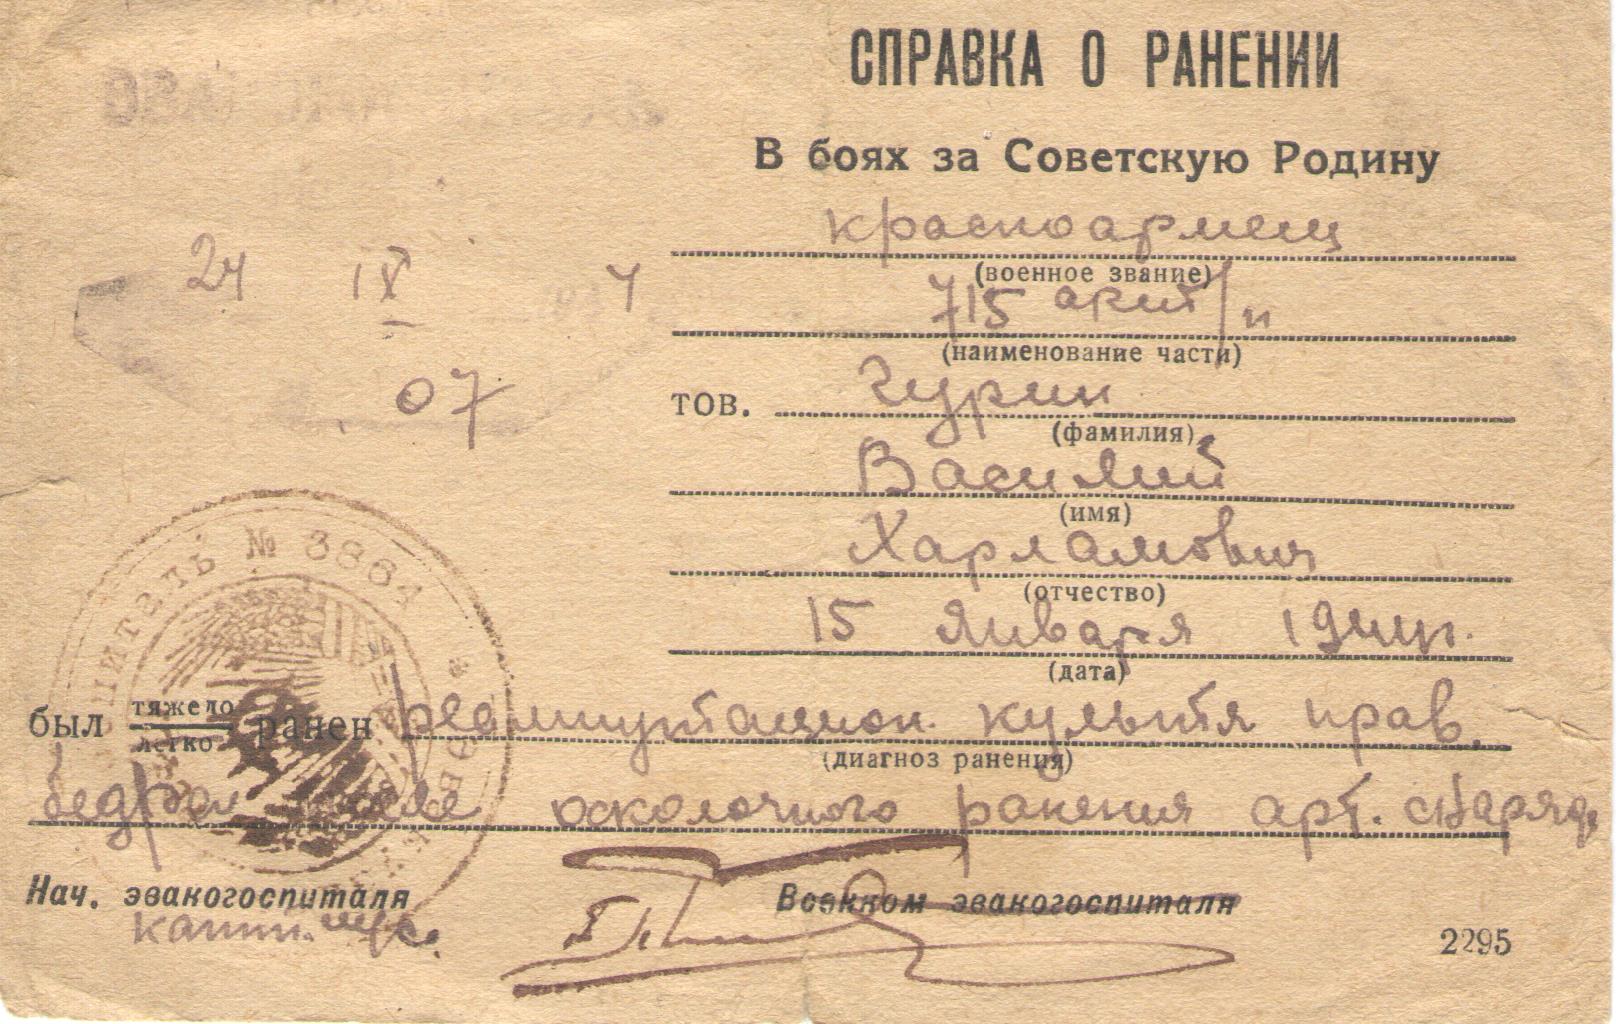 СПРАВКА О РАНЕНИИ
В боях за Советскую Родину
красноармеец
(военное звание)
715
(наименование части)
тов. Чурин
(фамилия)
Василий
(имя)
Харламович
(отчество)
15 января 1944г.
(дата)
был тяжело ранен реампутацион. культя прав.
легко
(диагноз ранения)
бедра после осколочного ранения арт. снаряда
Нач. эвакогоспиталя Военком эвакогоспиталя
капит. м/с.
2295
24 IX 4
07
№ 3864